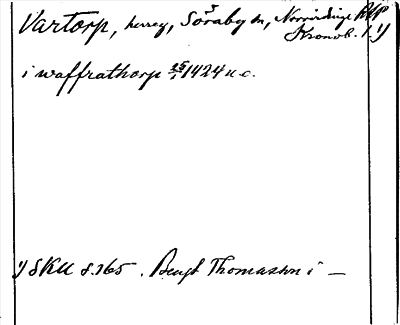 Vartorp, herrg, Söraby sn, Norrvidinge RAP
Kronob. l. 1)
i waffrathorp 25/1 1424 u.c.
1) SRU s. 365. Bengt Thomasson i —